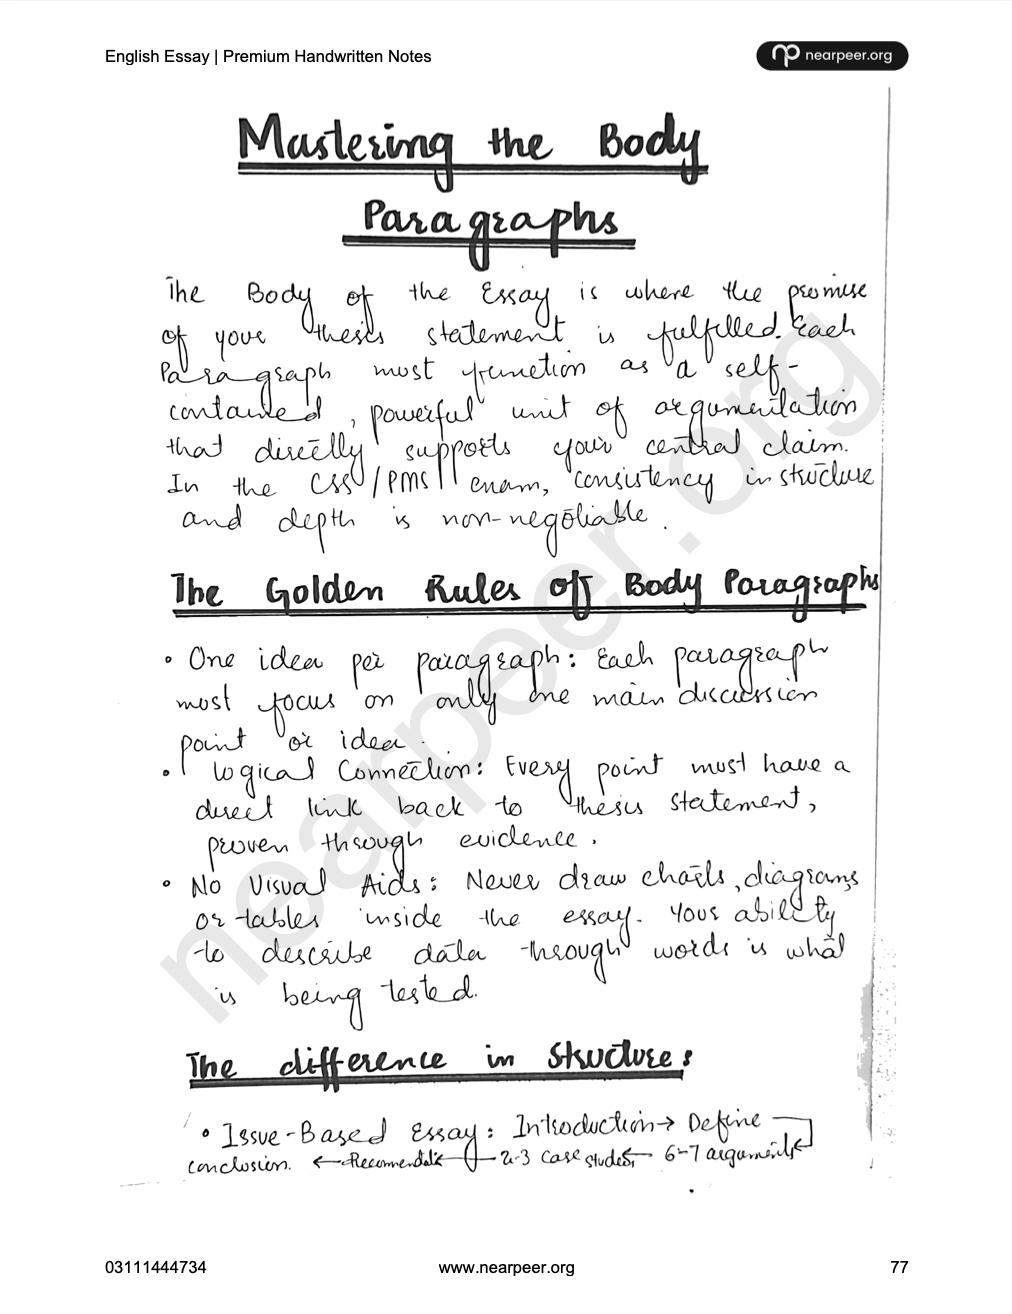 English Essay | Premium Handwritten Notes
nearpeer.org
Mastering the Body
Paragraphs
The Body of the Essay is where the promise
of your thesis statement is fulfilled. Each
Paragraph must function as a self-
contained, powerful unit of argumentation
that directly supports your central claim.
In the CSS/PMS exam, consistency in structure
and depth is non-negotiable.
The Golden Rules of Body Paragraphs
• One idea per paragraph: Each paragraph
must focus on only one main discussion
point or idea.
• Logical Connection: Every point must have a
direct link back to thesis statement,
proven through evidence.
• No Visual Aids: Never draw charts, diagrams
or tables inside the essay. Your ability
to describe data through words is what
is being tested.
The difference in Structure:
• Issue-Based Essay: Introduction → Define
conclusion. ← Recommendat. ← 2-3 case studies ← 6-7 arguments ←
nearpeer.org
03111444734
www.nearpeer.org
77